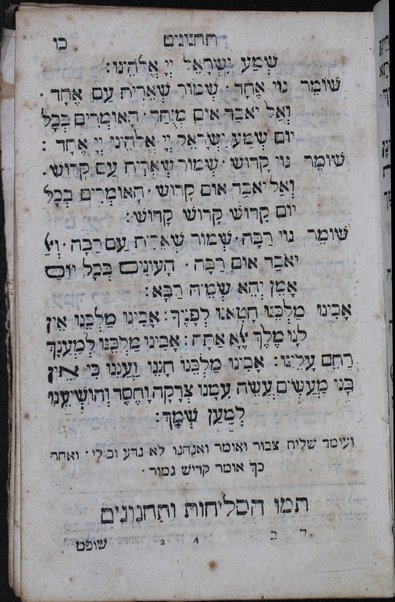 תחנונים כו
שְׁמַע יִשְׂרָאֵל יְיָ אֱלֹהֵינוּ:
שׁוֹמֵר גּוֹי אֶחָד · שְׁמוֹר שְׁאֵרִית עַם אֶחָד ·
וְאַל יֹאבַד אוֹם מְיֻחָד · הָאוֹמְרִים בְּכָל
יוֹם שְׁמַע יִשְׂרָאֵל יְיָ אֱלֹהֵינוּ יְיָ אֶחָד :
שׁוֹמֵר גּוֹי קָדוֹשׁ · שְׁמוֹר שְׁאֵרִית עַם קָדוֹשׁ ·
וְאַל יֹאבַד אוֹם קָדוֹשׁ · הָאוֹמְרִים בְּכָל
יוֹם קָדוֹשׁ קָדוֹשׁ קָדוֹשׁ:
שׁוֹמֵר גּוֹי רַבָּה · שְׁמוֹר שְׁאֵרִית עַם רַבָּה · וְאַל
יֹאבַד אוֹם רַבָּה · הָעוֹנִים בְּכָל יוֹם
אָמֵן יְהֵא שְׁמֵהּ רַבָּא:
אָבִינוּ מַלְכֵּנוּ חָטָאנוּ לְפָנֶיךָ: אָבִינוּ מַלְכֵּנוּ אֵין
לָנוּ מֶלֶךְ אֶלָּא אָתָּה: אָבִינוּ מַלְכֵּנוּ לְמַעַנְךָ
רַחֵם עָלֵינוּ: אָבִינוּ מַלְכֵּנוּ חָנֵּנוּ וַעֲנֵנוּ כִּי אֵין
בָּנוּ מַעֲשִׂים עֲשֵׂה עִמָּנוּ צְדָקָה וָחֶסֶד וְהוֹשִׁיעֵנוּ
לְמַעַן שְׁמֶךָ:
ועומד שליח צבור ואומר ואנחנו לא נדע וכולי · ואחר
כך אומר קדיש גמור ·
תמו הסליחות ותחנונים
ד 2 4 שופט